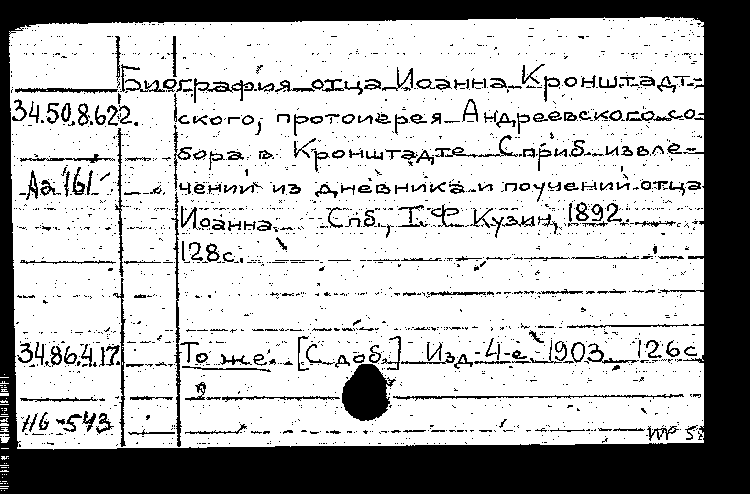 Биография отца Иоанна Кронштадт-
34.50.8.622. ского, протоиерея Андреевского со-
бора в Кронштадте С приб. извле-
Аз 161 чений из дневника и поучений отца
Иоанна. Спб., Т. Ф. Кузин, 1892.
128с.
34.86.4.17. То же. [С доб.] Изд. 4-е. 1903. 126с.
116-543